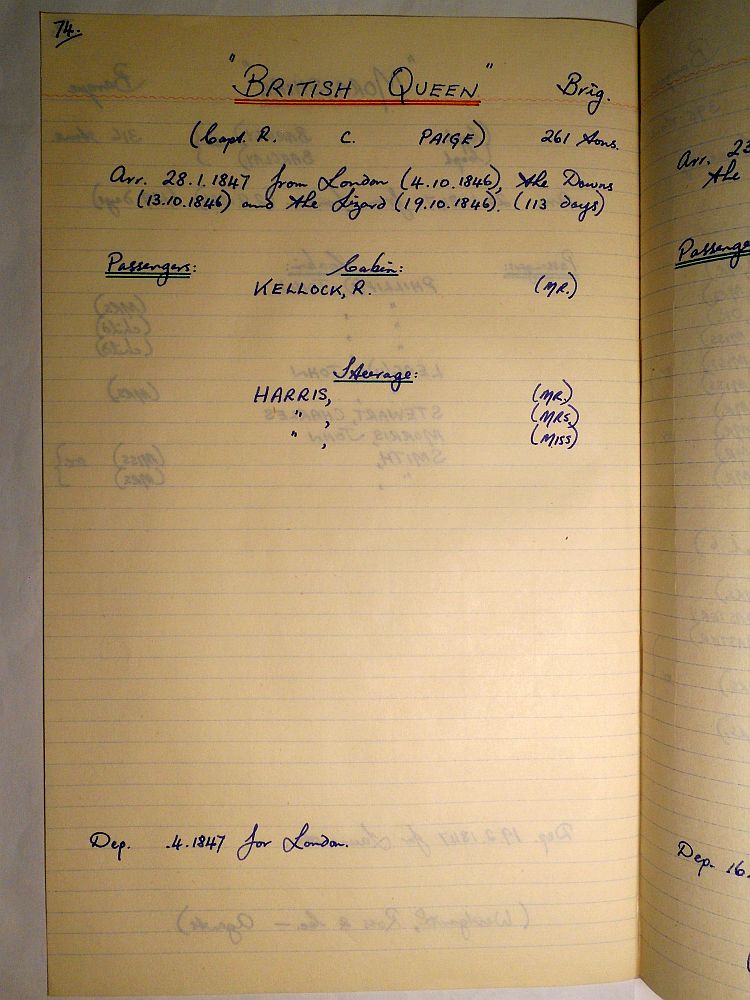 74.
"BRITISH QUEEN" Brig.
(Capt. R. C. PAIGE) 261 tons.
Arr. 28.1.1847 from London (4.10.1846), the Downs
(13.10.1846) and the Lizard (19.10.1846). (113 days)
Passengers: Cabin:
KELLOCK, R. (MR.)
Steerage:
HARRIS, (MR.)
" , (MRS.)
" , (MISS)
Dep. .4.1847 for London.
Arr. 23
the
Passenge
Dep. 16.